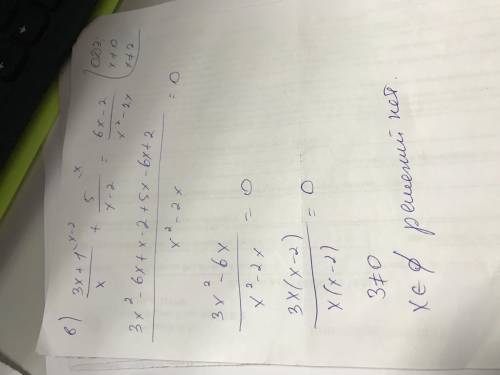 в) (3x+1)/x ^(x-2) + 5/(x-2) ^x = (6x-2)/(x²-2x)
ОДЗ:
x≠0
x≠2
(3x²-6x+x-2+5x-6x+2)/(x²-2x) = 0
(3x²-6x)/(x²-2x) = 0
3x(x-2)/x(x-2) = 0
3≠0
x∈∅ решений нет.